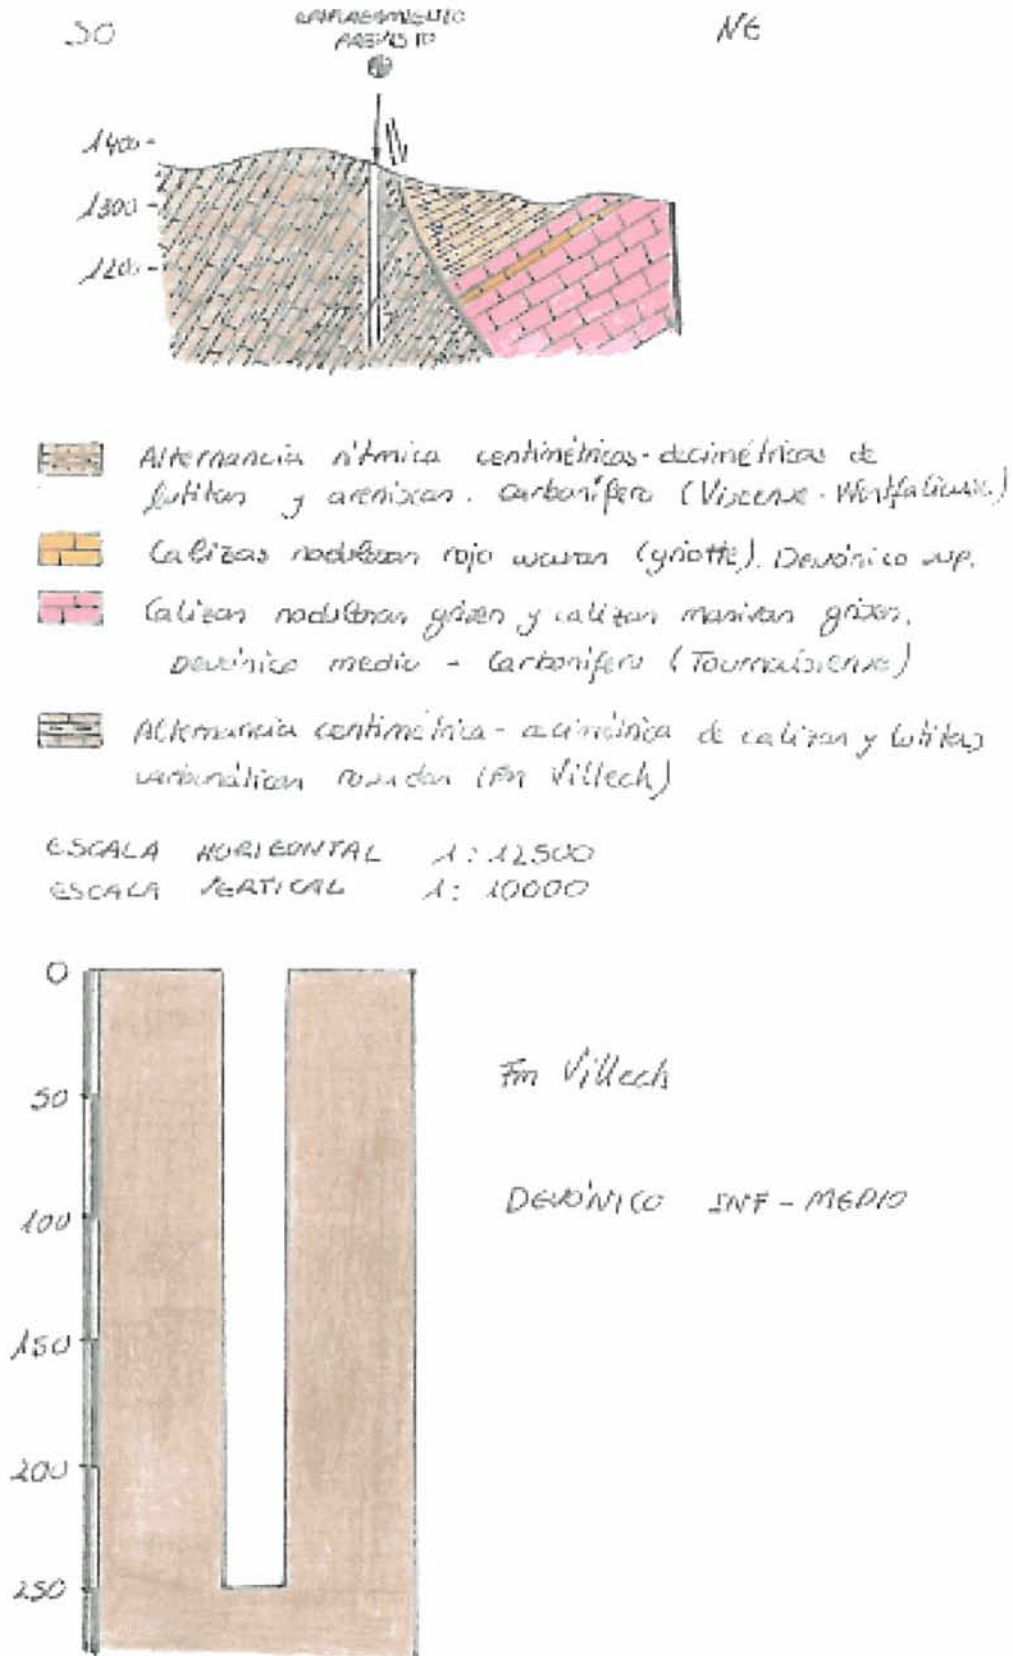 SO
EMPLAZAMIENTO
PREVISTO
NE
1400-
1300-
1200-
Alternancia rítmica centimétricas-decimétricas de
lutitas y areniscas. Carbonífero (Viseense-Westfaliense)
Calizas nodulosas rojo oscuras (griotte). Devónico sup.
Calizas nodulosas grises y calizas masivas grises.
Devónico medio - Carbonífero (Tournaisiense)
Alternancia centimétrica-decimétrica de calizas y lutitas
carbonáticas rosadas (Fm Villech)
ESCALA HORIZONTAL 1:12500
ESCALA VERTICAL 1:10000
0
50
100
150
200
250
Fm Villech
DEVÓNICO INF-MEDIO